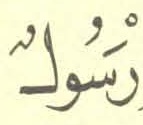 رَسُولُ